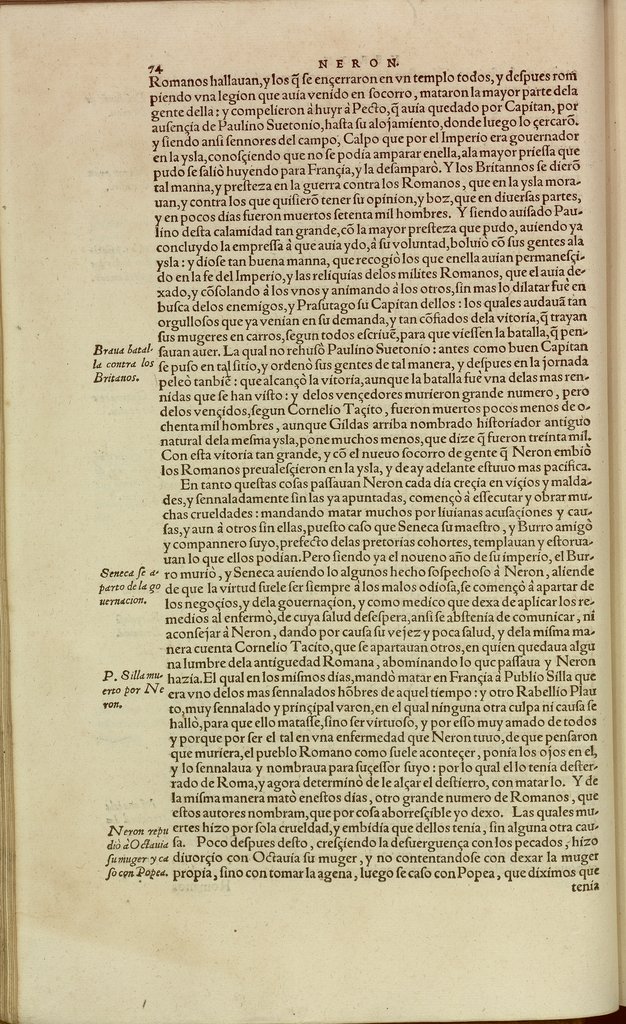 74
NERON.
Romanos hallauan,y los q̃ se ençerraron en vn templo todos, y despues rom
piendo vna legion que auia venido en socorro, mataron la mayor parte dela
gente della: y compelieron à huyr à Pecto,q̃ auia quedado por Capitan, por
ausençia de Paulino Suetonio, hasta su alojamiento, donde luego lo çercarõ.
y siendo ansi sennores del campo, Calpo que por el Imperio era gouernador
en la ysla, conosçiendo que no se podia amparar enella, ala mayor priessa que
pudo se salio huyendo para Françia,y la desamparò. Y los Britannos se dierõ
tal manna, y presteza en la guerra contra los Romanos, que en la ysla mora-
uan,y contra los que quisierõ tener su opinion, y boz, que en diuersas partes,
y en pocos dias fueron muertos setenta mil hombres. Y siendo auisado Pau-
lino desta calamidad tan grande, cõ la mayor presteza que pudo, auiendo ya
concluydo la empressa à que auia ydo,à su voluntad, boluiò cõ sus gentes ala
ysla: y diose tan buena manna, que recogiò los que enella auian permanesçi-
do en la fe del Imperio, y las reliquias delos milites Romanos, que el auia de-
xado,y cõsolando à los vnos y animando à los otros, sin mas lo dilatar fue en
busca delos enemigos, y Prasutago su Capitan dellos: los quales audauã tan
orgullosos que ya venian en su demanda, y tan cõfiados dela vitoria, q̃ trayan
sus mugeres en carros, segun todos escriuẽ, para que viessen la batalla, q̃ pen-
sauan auer. La qual no rehusò Paulino Suetonio: antes como buen Capitan
se puso en tal sitio, y ordenò sus gentes de tal manera, y despues en la jornada
peleò tanbiẽ: que alcançò la vitoria, aunque la batalla fuè vna delas mas ren-
nidas que se han visto: y delos vençedores murieron grande numero, pero
delos vençidos, segun Cornelio Taçito, fueron muertos pocos menos de o-
chenta mil hombres, aunque Gildas arriba nombrado historiador antiguo
natural dela mesma ysla, pone muchos menos, que dize q̃ fueron treinta mil.
Con esta vitoria tan grande, y cõ el nueuo socorro de gente q̃ Neron embiò
los Romanos preualesçieron en la ysla, y de ay adelante estuuo mas paçifica.
En tanto questas cosas passauan Neron cada dia creçia en viçios y malda-
des,y sennaladamente sin las ya apuntadas, començò à essecutar y obrar mu-
chas crueldades: mandando matar muchos por liuianas acusaçiones y cau-
sas, y aun à otros sin ellas, puesto caso que Seneca su maestro, y Burro amigo
y compannero suyo, prefecto delas pretorias cohortes, templauan y estorua-
uan lo que ellos podian. Pero siendo ya el noueno año de su imperio, el Bur-
ro muriò, y Seneca auiendo lo algunos hecho sospechoso à Neron, aliende
de que la virtud suele ser siempre à los malos odiosa, se començò à apartar de
los negoçios, y dela gouernaçion, y como medico que dexa de aplicar los re-
medios al enfermò, de cuya salud desespera, ansi se abstenia de comunicar, ni
aconsejar à Neron, dando por causa su vejez y poca salud, y dela misma ma-
nera cuenta Cornelio Tacito, que se apartauan otros, en quien quedaua algu
na lumbre dela antiguedad Romana, abominando lo que passaua y Neron
hazia. El qual en los mismos dias, mandò matar en Françia à Publio Silla que
era vno delos mas sennalados hõbres de aquel tiempo: y otro Rabellio Plau
to, muy sennalado y prinçipal varon, en el qual ninguna otra culpa ni causa se
hallò, para que ello matasse, sino ser virtuoso, y por esso muy amado de todos
y porque por ser el tal en vna enfermedad que Neron tuuo, de que pensaron
que muriera, el pueblo Romano como suele aconteçer, ponia los ojos en el,
y lo sennalaua y nombraua para suçessor suyo: por lo qual el lo tenia dester-
rado de Roma,y agora determinò de le alçar el destierro, con matar lo. Y de
la misma manera matò enestos dias, otro grande numero de Romanos, que
estos autores nombram, que por cosa aborresçible yo dexo. Las quales mu-
ertes hizo por sola crueldad, y embidia que dellos tenia, sin alguna otra cau-
sa. Poco despues desto, cresçiendo la desuerguença con los pecados, hizo
diuorçio con Octauia su muger, y no contentandose con dexar la muger
propia, sino con tomar la agena, luego se caso con Popea, que diximos que
tenia
Braua batal-
la contra los
Britanos.
Seneca se a-
parto de la go
uernacion.
P. Silla mu-
erto por Ne
ron.
Neron repu
diò à Octauia
su muger y ca
so con Popea.